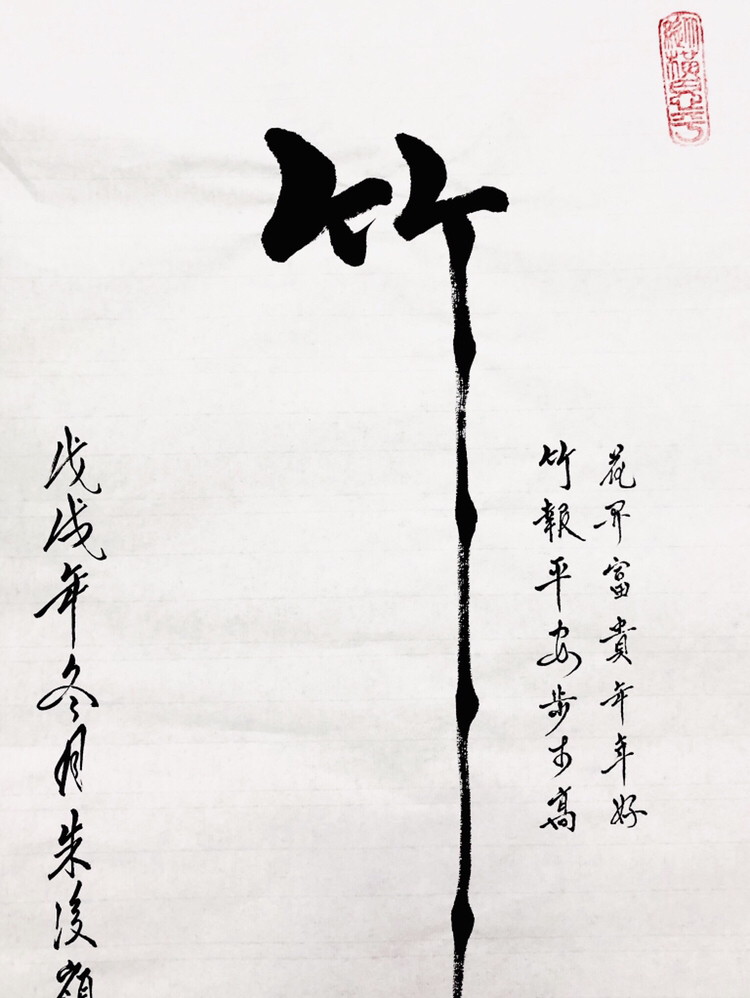 花开富貴年年好
竹報平安步步高
竹
戊戌年冬月朱浚